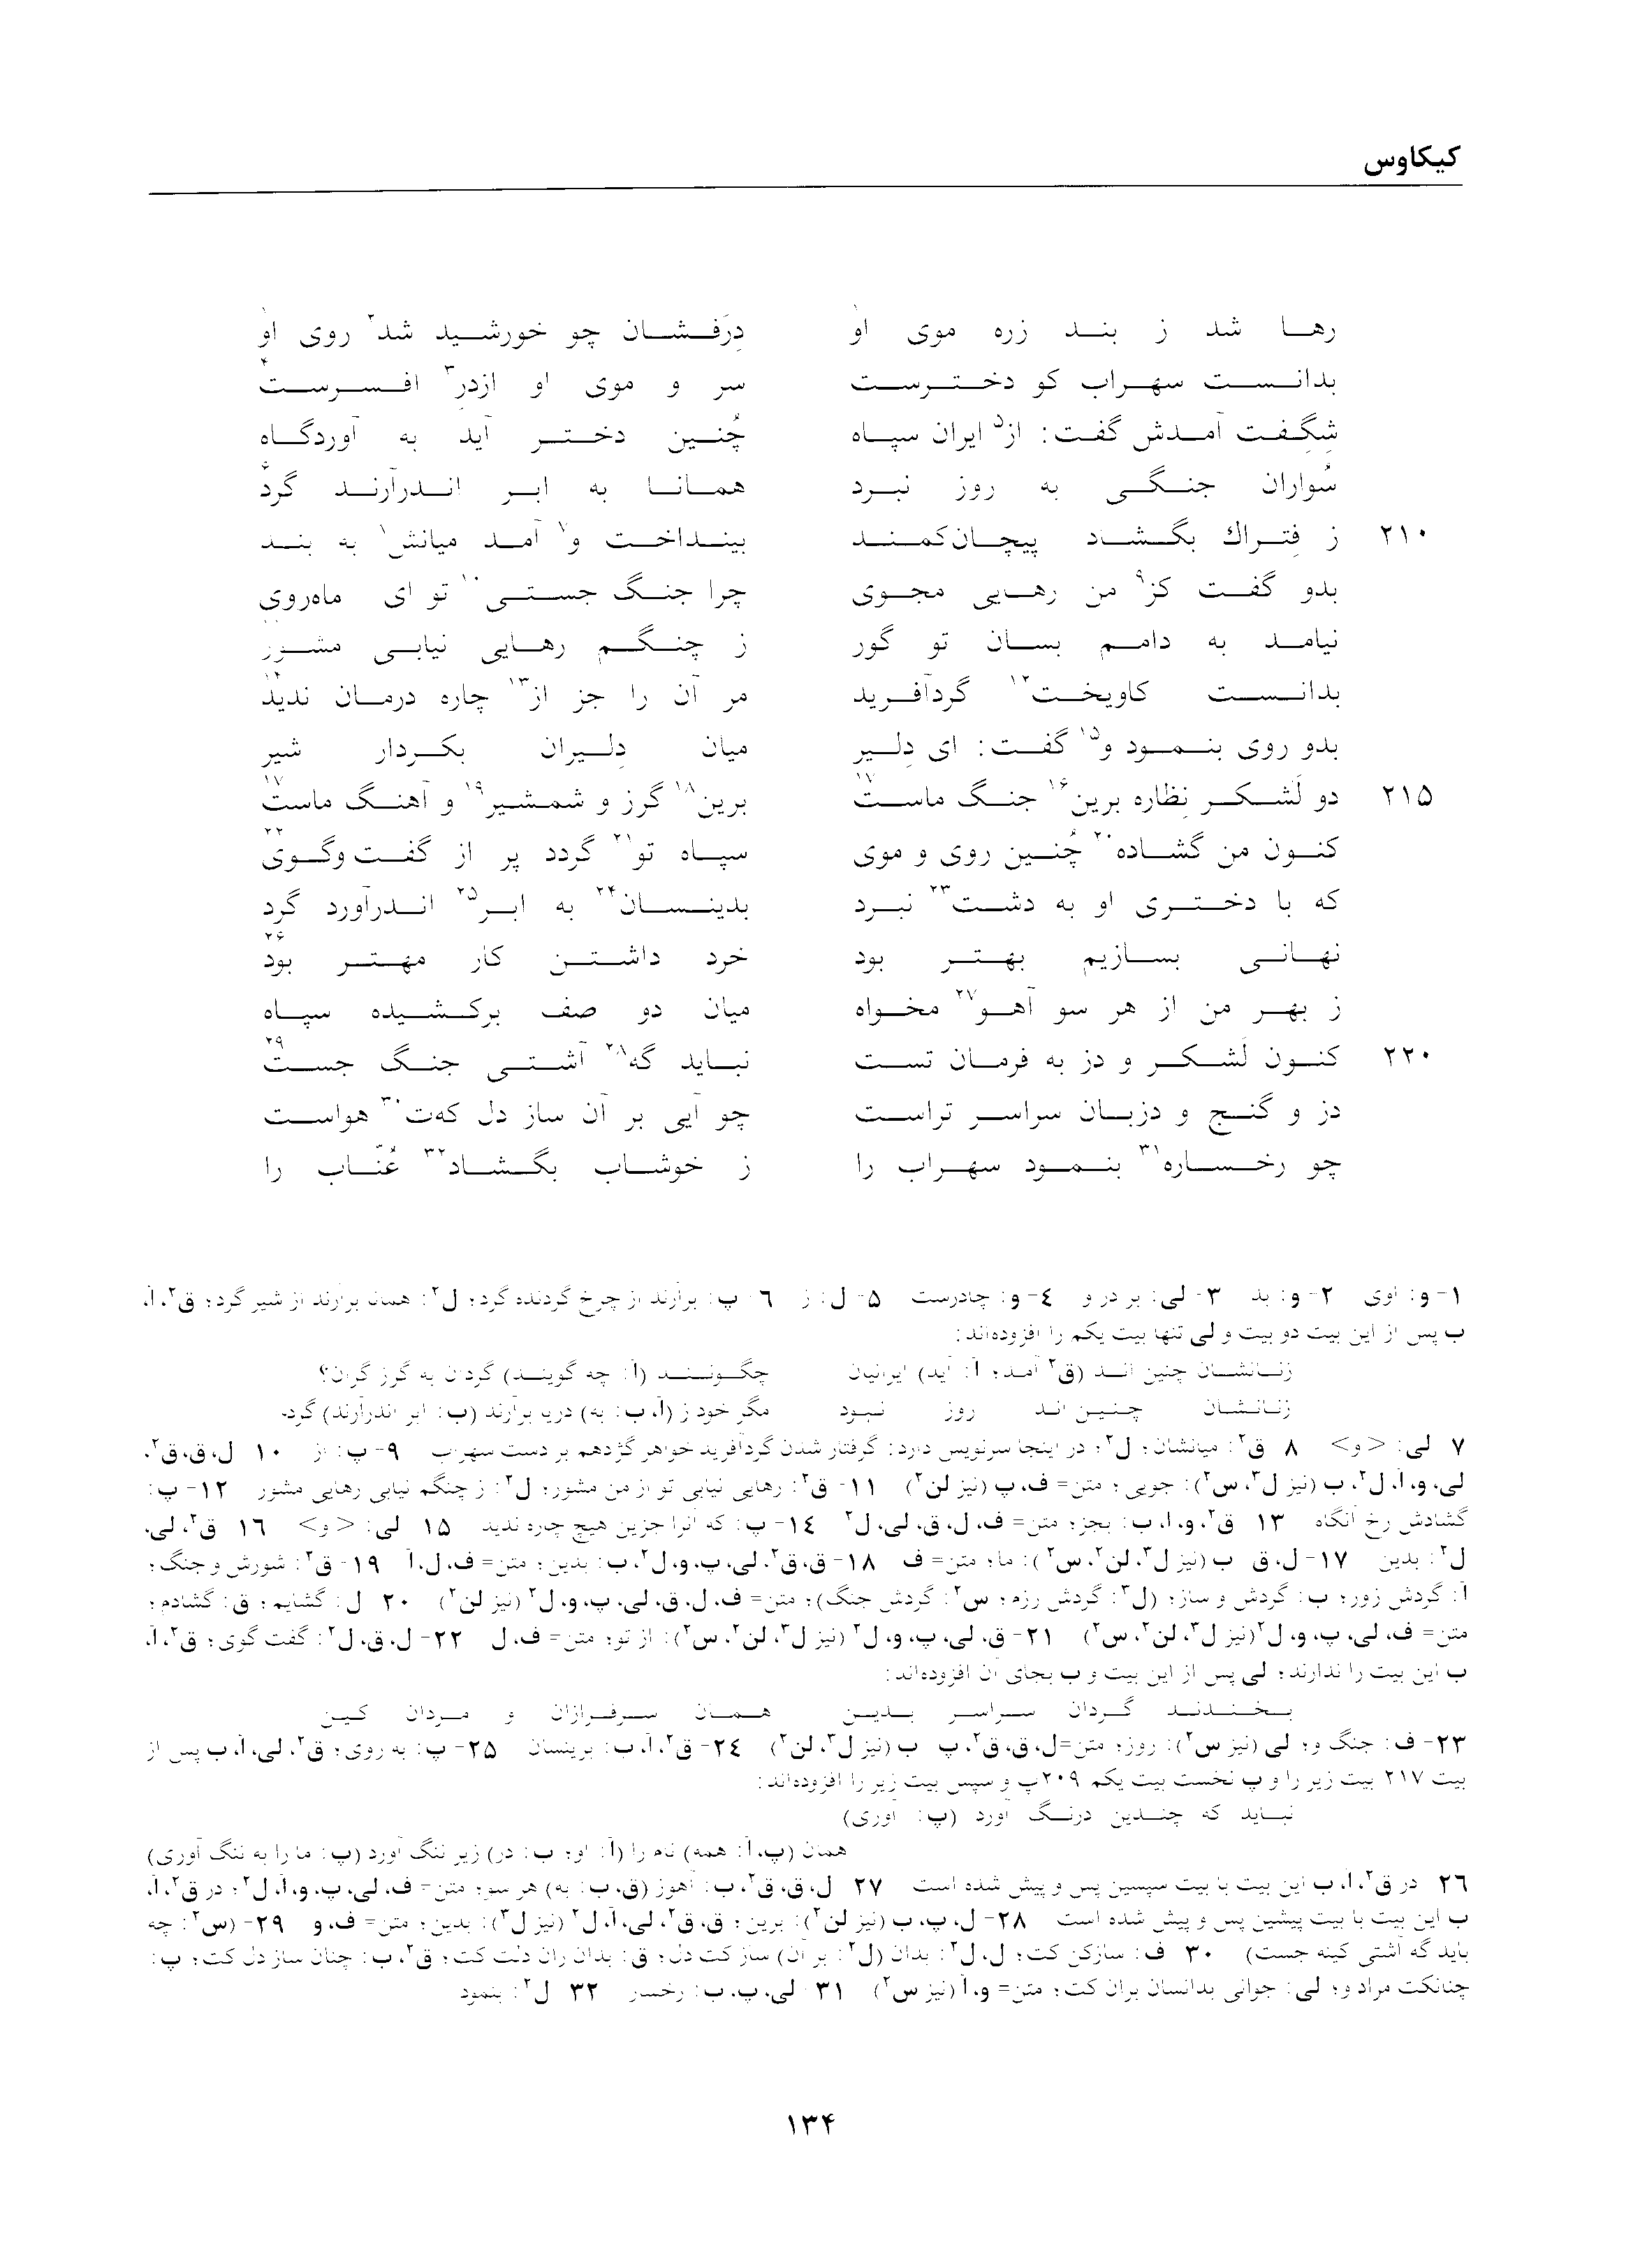 کیکاوس
رها شد ز بند زره موی او¹ درفشان چو خورشید شد² روی او¹
بدانست سهراب کو دخترست سر و موی او ازدر³ افسرست⁴
شِگِفت آمدش گفت: از⁵ ایران سپاه چُنین دختر آید به آوردگاه
سُواران جنگی به روز نبرد همانا به ابر اندرآرند گرد⁶
۲۱۰ ز فِتراك بگشاد پیچان کمند بینداخت و⁷ آمد میانش⁸ به بند
بدو گفت کز⁹ من رهایی مجوی چرا جنگ جستی¹⁰ تو ای ماه‌روی
نیامد به دامم بسان تو گور ز چنگم رهایی نیابی مشور¹¹
بدانست کاویخت¹² گردآفرید مر آن را جز از¹³ چاره درمان ندید¹⁴
بدو روی بنمود و¹⁵ گفت: ای دلیر میان دلیران بکردار شیر
۲۱۵ دو لَشکر نِظاره برین¹⁶ جنگ ماست¹⁷ برین¹⁸ گرز و شمشیر¹⁹ و آهنگ ماست¹⁷
کنون من گشاده²⁰ چُنین روی و موی سپاه تو²¹ گردد پر از گفت‌وگوی²²
که با دختری او به دشت²³ نبرد بدینسان²⁴ به ابر²⁵ اندرآورد گرد
نهانی بسازیم بهتر بود خرد داشتن کار مهتر بود²⁶
ز بهر من از هر سو آهو²⁷ مخواه میان دو صف برکشیده سپاه
۲۲۰ کنون لَشکر و دز به فرمان تست نباید گه²⁸ آشتی جنگ جست²⁹
دز و گنج و دزبان سراسر تراست چو آیی بر آن ساز دل که‌ت³⁰ هواست
چو رخساره³¹ بنمود سهراب را ز خوشاب بگشاد³² عُنّاب را
۱- و: اوی ۲- و: بد ۳- لی: بر در و ٤- و: چادرست ۵- ل: ز ٦- پ: برآرند از چرخ گردنده گرد؛ ل²: همان برآرند از شیر گرد؛ ق²، آ،
ب پس از این بیت دو بیت و لی تنها بیت یکم را افزوده‌اند:
زنانشان چنین اند (ق² آمد؛ آ: آید) ایرانیان چگونند (آ: چه گویند) گردان به گرز گران؟
زنانشان چنین اند روز نبود مگر خود ز (آ، ب: به) دریا برآرند (ب: ابر اندرآرند) گرد
۷ لی: <و> ۸ ق²: میانشان؛ ل²: در اینجا سرنویس دارد: گرفتار شدن گردآفرید خواهر گژدهم بر دست سهراب ۹- پ: از ۱۰ ل، ق، ق²،
لی، و، آ، ل²، ب (نیز ل³، س²): جویی؛ متن= ف، پ (نیز لن²) ۱۱- ق²: رهایی نیابی تو از من مشور؛ ل²: ز چنگم نیابی رهایی مشور ۱۲- پ:
گشادش رخ آنگاه ۱۳ ق²، و، آ، ب: بجز؛ متن= ف، ل، ق، لی، ل² ۱٤- پ: که آنرا جزین هیچ چاره ندید ۱۵ لی: <و> ۱٦ ق²، لی،
ل²: بدین ۱۷- ل، ق ب (نیز ل³، لن²، س²): ما؛ متن= ف ۱۸- ق، ق²، لی، پ، و، ل²، ب: بدین؛ متن= ف، ل، آ ۱۹- ق²: شورش و جنگ؛
آ: گردش زور؛ ب: گردش و ساز؛ (ل³: گردش رزم؛ س²: گردش جنگ)؛ متن= ف، ل، ق، لی، پ، و، ل² (نیز لن²) ۲۰ ل: گشایم؛ ق: گشادم؛
متن= ف، لی، پ، و، ل² (نیز ل³، لن²، س²) ۲۱- ق، لی، پ، و، ل² (نیز ل³، لن²، س²): از تو؛ متن= ف، ل ۲۲- ل، ق، ل²: گفت گوی؛ ق²، آ،
ب این بیت را ندارند؛ لی پس از این بیت و ب بجای آن افزوده‌اند:
بخندند گردان سراسر بدین همان سرفرازان و مردان کین
۲۳- ف: جنگ و؛ لی (نیز س²): روز؛ متن=ل، ق، ق²، پ ب (نیز ل³، لن²) ۲٤- ق²، آ، ب: برینسان ۲۵- پ: به روی؛ ق²، لی، آ، ب پس از
بیت ۲۱۷ بیت زیر را و پ نخست بیت یکم ۲۰۹پ و سپس بیت زیر را افزوده‌اند:
نباید که چندین درنگ آورد (پ: آوری)
همان (پ، آ: همه) نام را (آ: او؛ ب: در) زیر ننگ آورد (پ: ما را به ننگ آوری)
۲٦ در ق²، آ، ب این بیت با بیت سپسین پس و پیش شده است ۲۷ ل، ق، ق²، ب: آهوز (ق، ب: به) هر سو؛ متن= ف، لی، پ، و، آ، ل²؛ در ق²، آ،
ب این بیت با بیت پیشین پس و پیش شده است ۲۸- ل، پ، ب (نیز لن²): برین؛ ق، ق²، لی، آ، ل² (نیز ل³): بدین؛ متن= ف، و ۲۹- (س²: چه
باید گه آشتی کینه جست) ۳۰ ف: سازکن کت؛ ل، ل²: بدان (ل²: بر آن) ساز کت دل؛ ق: بدان ران دلت کت؛ ق²، ب: چنان ساز دل کت؛ پ:
چنانکت مراد و؛ لی: جوانی بدانسان بران کت؛ متن= و، آ (نیز س²) ۳۱ لی، پ، ب: رخسار ۳۲ ل²: بنمود
۱۳۴